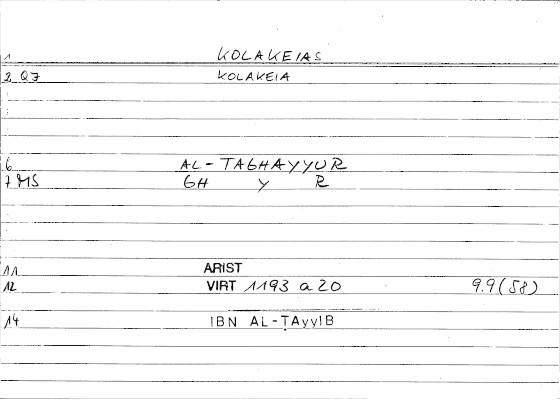 1 KOLAKEIAS
2 Q7 KOLAKEIA
6 AL-TAGHAYYUR
7 MS GH Y R
11 ARIST
12 VIRT 1193 a 20 9.9 (58)
14 IBN AL-ṬAyyIB